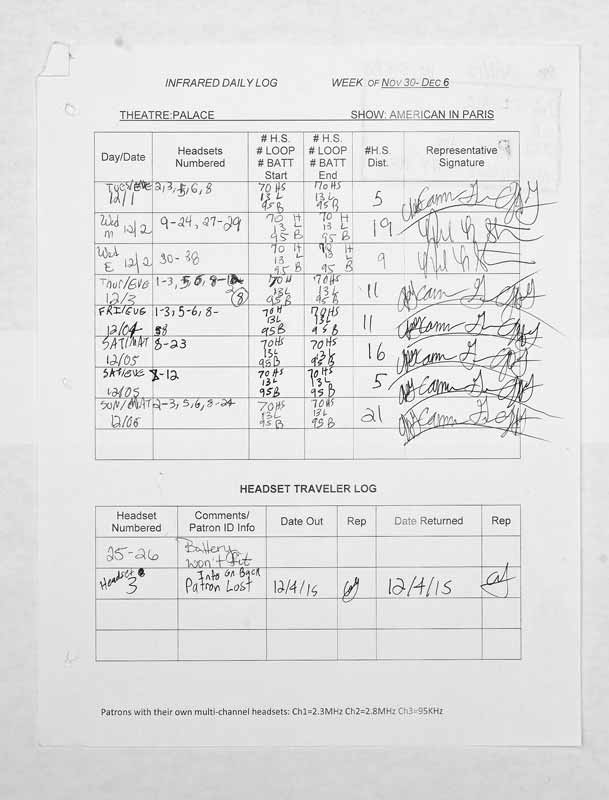 INFRARED DAILY LOG WEEK OF NOV 30- DEC 6
THEATRE:PALACE SHOW: AMERICAN IN PARIS
Day/Date Headsets Numbered # H.S. # LOOP # BATT Start # H.S. # LOOP # BATT End #H.S. Dist. Representative Signature
TUES/EVE 12/1 2, 3, 5, 6, 8 70 HS 13 L 95 B 70 HS 13 L 95 B 5
Wed m 12/2 9-24, 27-29 70 H 13 L 95 B 70 H 13 L 95 B 19
Wed E 12/2 30-38 70 H 13 L 95 B 70 H 13 L 95 B 9
THUR/EVE 12/3 1-3, 5, 6, 8- 70 H 13L 95 B 70HS 13L 95 B 11
FRI/EVE 12/04 1-3, 5-6, 8- 70 H 13L 95B 70HS 13L 95 B 11
SAT/MAT 12/05 8-23 70HS 13L 95B 70HS 13L 95 B 16
SAT/EVE 12/05 8-12 70HS 13L 95B 70HS 13L 95B 5
SUN/MAT 12/06 2-3, 5, 6, 8-24 70HS 13L 95 B 70HS 13L 95 B 21
HEADSET TRAVELER LOG
Headset Numbered Comments/ Patron ID Info Date Out Rep Date Returned Rep
25-26 Battery won't fit
Headset 3 Info on Back Patron Lost 12/4/15 12/4/15
Patrons with their own multi-channel headsets: Ch1=2.3MHz Ch2=2.8MHz Ch3=95KHz